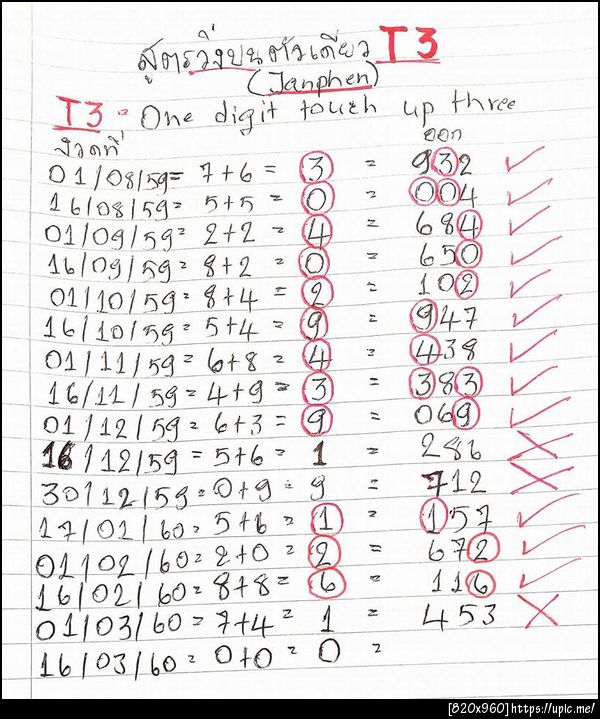 สูตรวิ่งบนตัวเดียว T3
(Janphen)
T3 = One digit touch up three
งวดที่ ออก
01/08/59= 7+6 = 3 = 932 ✓
16/08/59= 5+5 = 0 = 004 ✓
01/09/59= 2+2 = 4 = 684 ✓
16/09/59= 8+2 = 0 = 650 ✓
01/10/59= 8+4 = 2 = 102 ✓
16/10/59= 5+4 = 9 = 947 ✓
01/11/59= 6+8 = 4 = 438 ✓
16/11/59= 4+9 = 3 = 383 ✓
01/12/59= 6+3 = 9 = 069 ✓
16/12/59= 5+6 = 1 = 286 ✗
30/12/59= 0+9 = 9 = 712 ✗
17/01/60= 5+6 = 1 = 157 ✓
01/02/60= 2+0 = 2 = 672 ✓
16/02/60= 8+8 = 6 = 116 ✓
01/03/60= 7+4 = 1 = 453 ✗
16/03/60= 0+0 = 0 =
[820x960]https://upic.me/